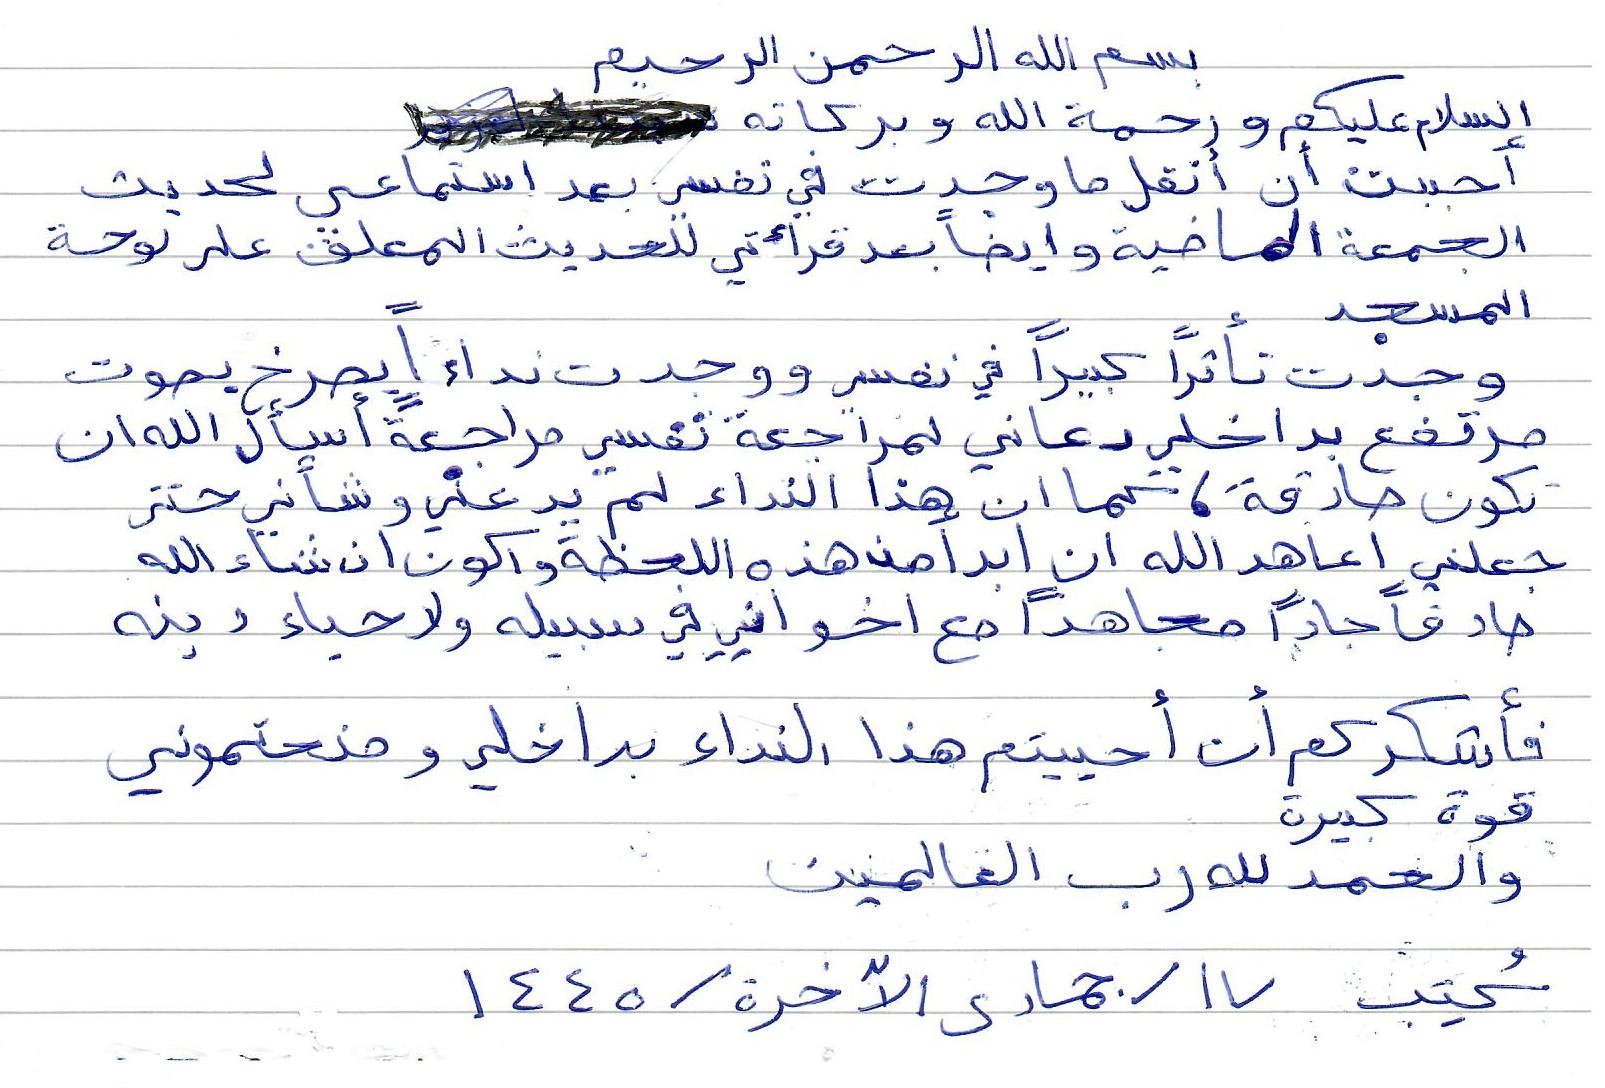 بسم الله الرحمن الرحيم
السلام عليكم ورحمة الله وبركاته
أحببت أن أنقل ما وجدت في نفسي بعد استماعي لحديث
الجمعة الماضية وايضاً بعد قرأءتي للحديث المعلق على لوحة
المسجد
وجدْت تأثراً كبيراً في نفسي ووجدت نداءاً يصرخ بصوت
مرتفع بداخلي دعاني لمراجعة نفسي مراجعةً أسأل الله ان
تكون صادقة، كما ان هذا النداء لم يدعني وشأني حتى
جعلني اعاهد الله ان ابدأ من هذه اللحظة واكون انشاء الله
صادقاً جاداً مجاهداً مع اخواني في سبيله ولاحياء دينه
فأشكركم أن أحييتم هذا النداء بداخلي ومنحتموني
قوة كبيرة
والحمد لله رب العالمين
كُتِب ١٧/جمادى الآخرة/١٤٤٥